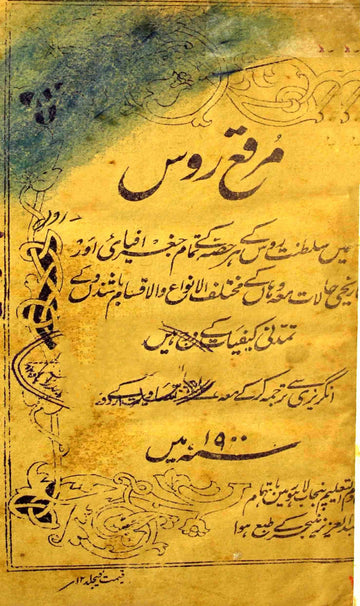 مُرقع رُوس
میں سلطنت روس کے ہر حصہ کے تمام جغرافیائی اور
تاریخی حالات معہ وہاں کے مختلف الانواع والاقسام باشندوں کے
تمدنی کیفیات کے درج ہیں
انگریزی سے ترجمہ کرکے معہ
سنہ ۱۹۰۰ میں
التعلیم پنجاب لاہور میں باہتمام
عبدالعزیز منیجر کے طبع ہوا
قیمت فیجلد ۱۲؍